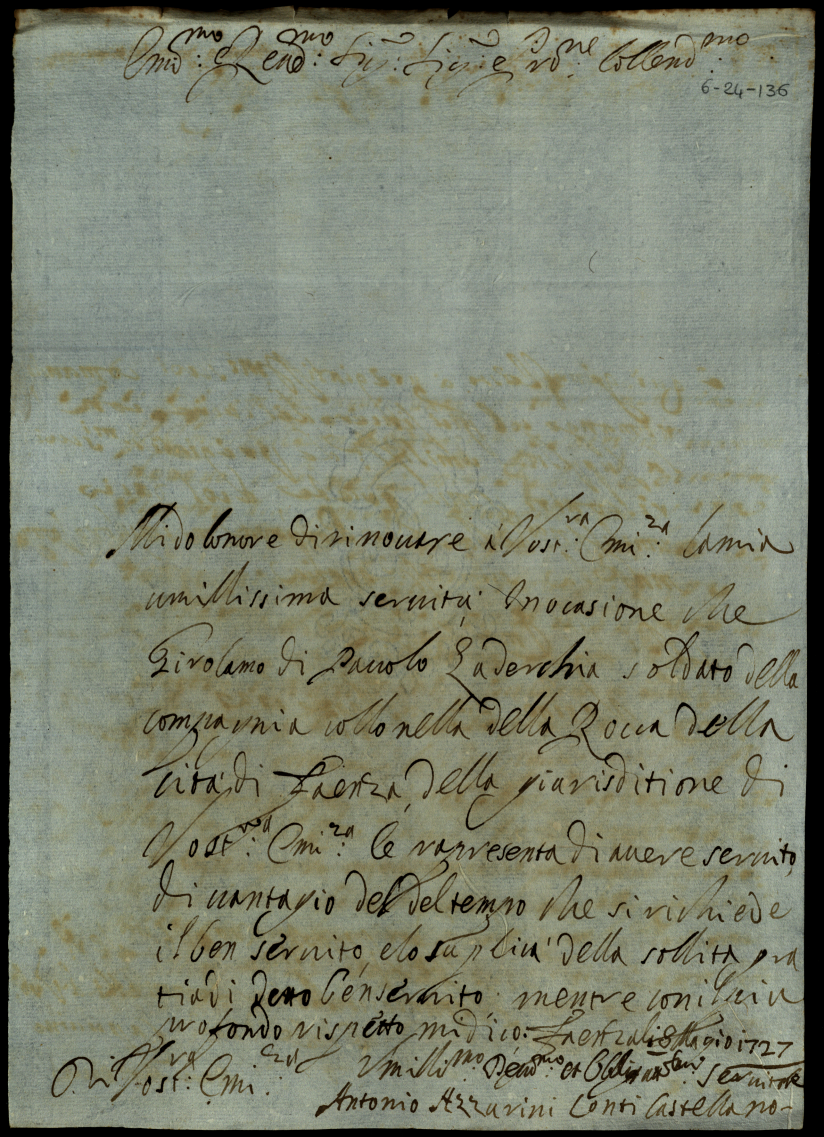 Emin:mo e Rend:mo Sig: Sig: e Prone Collend:mo
6-24-136
Mi do lonore di rinouare á Vost:ra Emi:za la mia
umillissima seruitú in ocasione che
Girolamo di Pauolo Laderchia soldato della
compagnia collonella della Rocca della
Cita di Faenza, della giurisditione di
Vost:ra Emi:za le rapresenta di auere seruito,
di uantagio del del tempo che si richiede
il ben seruito, e lo suplica della sollita gra
tia di detto benseruito mentre con il piu
profondo rispetto mi dico: Faenza li 8 Magio 1727
Di Vost:ra Emi:za Vmilli:mo Deuo:mo et Obbli seruitore
Antonio Azzurini Conti Castellano-